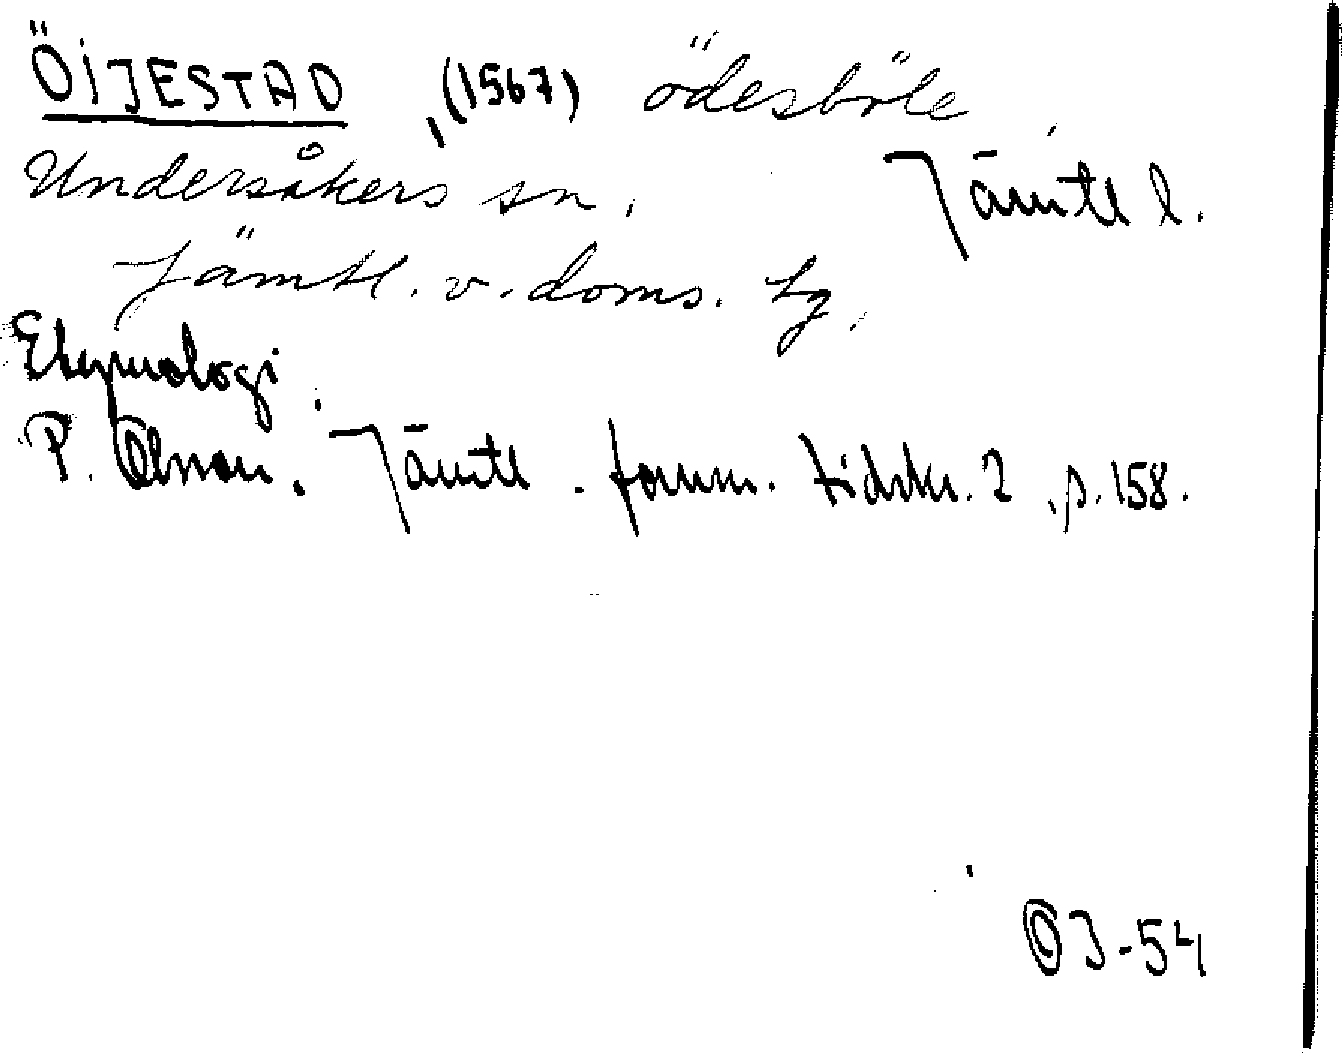 ÖIJESTAD, (1567) ödesböle
Undersåkers sn. Jämtl l.
Jämtl. v. doms. tg.
Etymologi:
P. Olsson. Jämtl. fornm. tidskr. 2, s. 158.
OJ-54